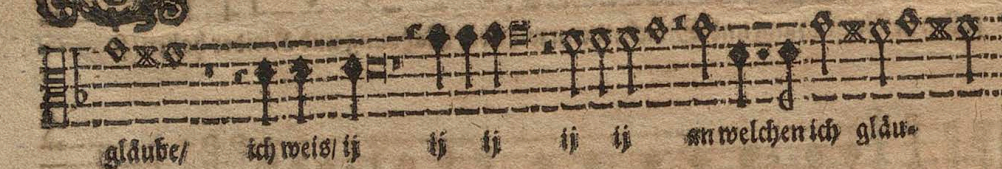 gläube/ ich weis/ ij ij ij ij ij an welchen ich gläu-